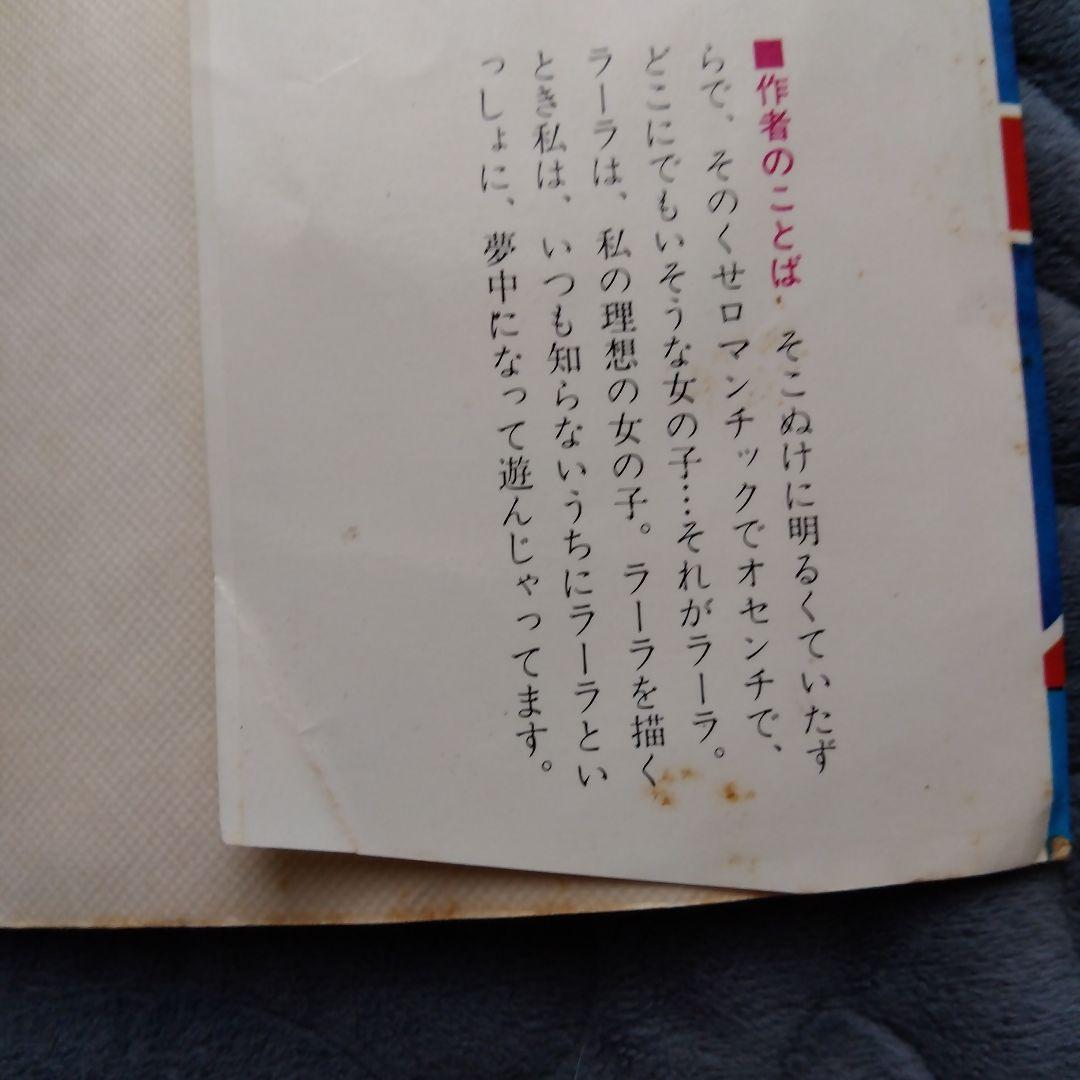 ■作者のことば　そこぬけに明るくていたず
らで、そのくせロマンチックでオセンチで、
どこにでもいそうな女の子…それがラーラ。
ラーラは、私の理想の女の子。ラーラを描く
とき私は、いつも知らないうちにラーラとい
っしょに、夢中になって遊んじゃってます。